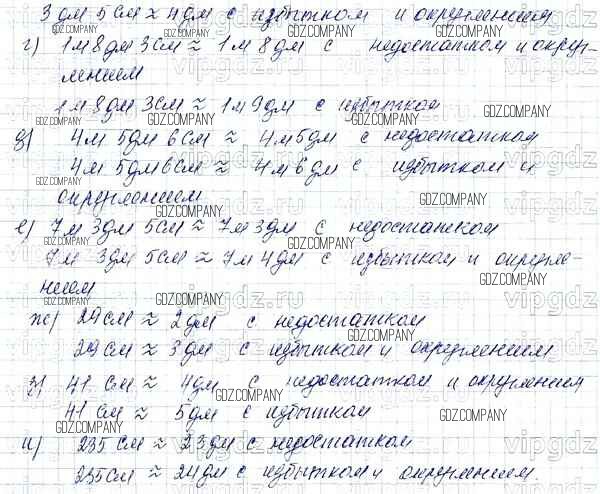 3 дм 5 см ≈ 4 дм с избытком и округлением
г) 1 м 8 дм 3 см ≈ 1 м 8 дм с недостатком и округ-
лением
1 м 8 дм 3 см ≈ 1 м 9 дм с избытком
д) 4 м 5 дм 6 см ≈ 4 м 5 дм с недостатком
4 м 5 дм 6 см ≈ 4 м 6 дм с избытком и
округлением
е) 7 м 3 дм 5 см ≈ 7 м 3 дм с недостатком
7 м 3 дм 5 см ≈ 7 м 4 дм с избытком и округле-
нием
ж) 29 см ≈ 2 дм с недостатком
29 см ≈ 3 дм с избытком и округлением
з) 41 см ≈ 4 дм с недостатком и округлением
41 см ≈ 5 дм с избытком
и) 235 см ≈ 23 дм с недостатком
235 см ≈ 24 дм с избытком и округлением
GDZ.COMPANY
vipgdz.ru